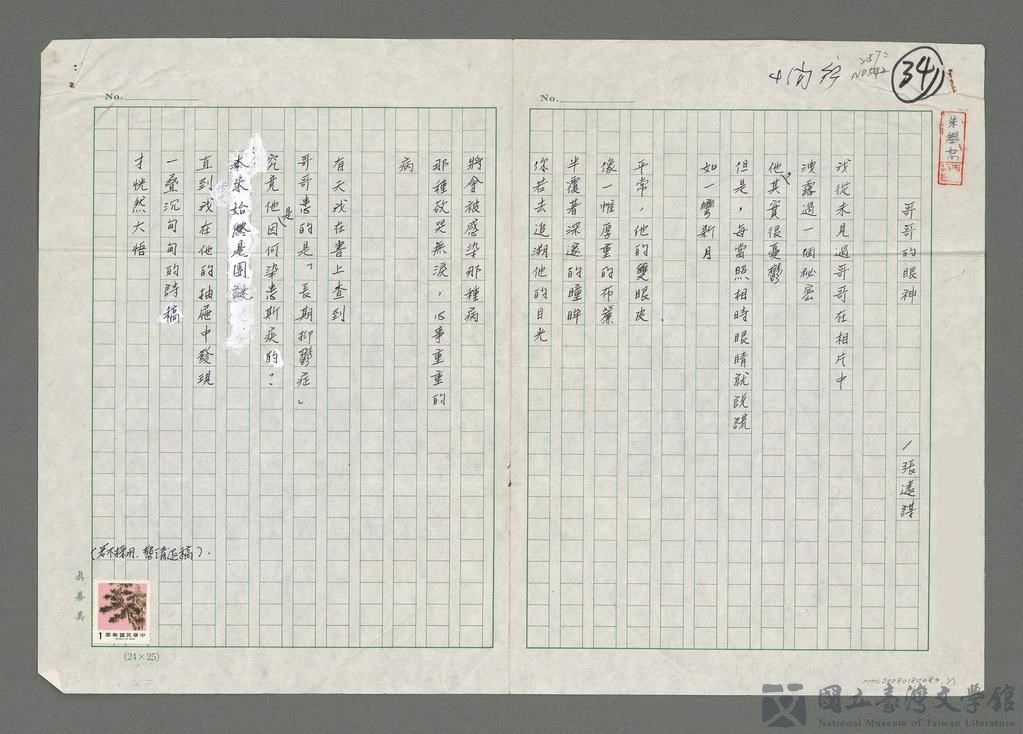 34
No.
No.
哥哥的眼神
/張遠謀
我從未見過哥哥在相片中
洩露過一個祕密
他其實很憂鬱
但是，每當照相時眼睛就說謊
如一彎新月
平常，他的雙眼皮
像一帷厚重的布簾
半覆著深邃的瞳眸
你若去追溯他的目光
將會被感染那種病
那種欲哭無淚，心事重重的
病
有天我在書上查到
哥哥患的是「長期抑鬱症」
究竟他是因何染患斯疾的？
本來始終是團謎
直到我在他的抽屜中發現
一疊沉甸甸的詩稿
才恍然大悟
(若不採用、懇請退稿).
真善美
中華民國郵票
1
(24×25)
國立臺灣文學館
National Museum of Taiwan Literature